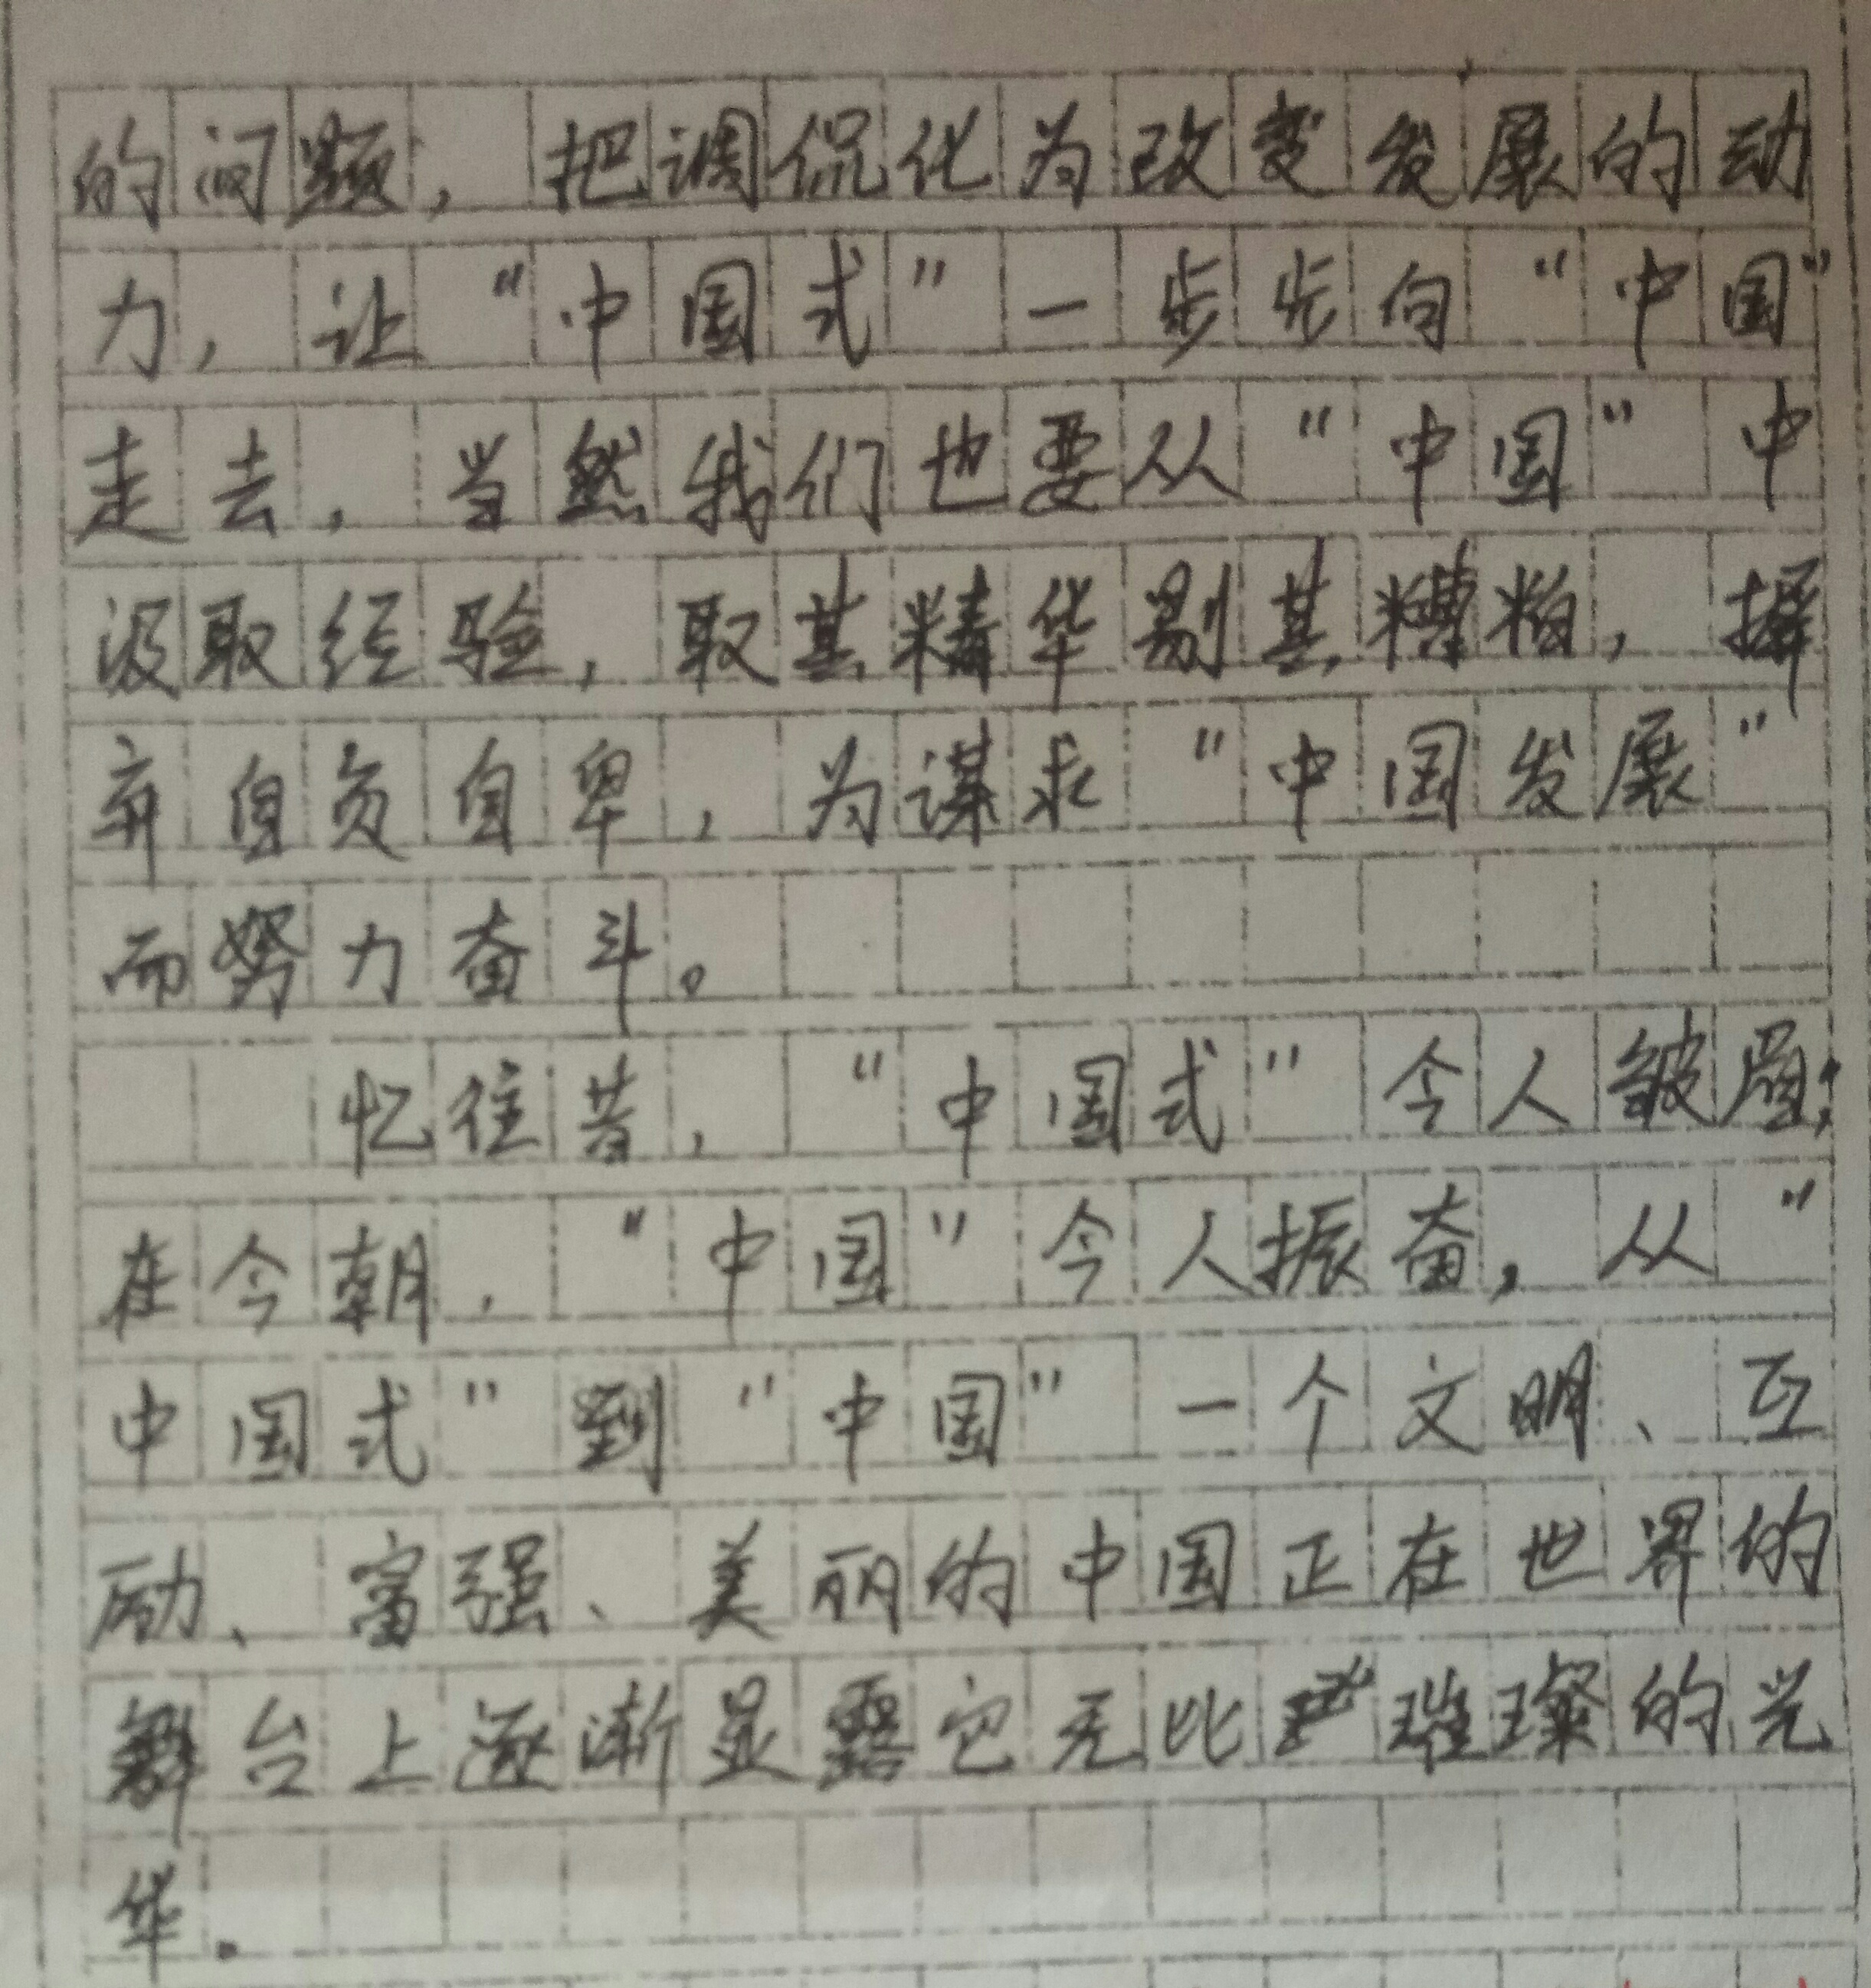 的问题，把调侃化为改变发展的动
力，让“中国式”一步步向“中国”
走去，当然我们也要从“中国”中
汲取经验，取其精华剔其糟粕，摒
弃自负自卑，为谋求“中国发展”
而努力奋斗。
忆往昔，“中国式”令人皱眉；
在今朝，“中国”令人振奋，从“
中国式”到“中国”一个文明、互
励、富强、美丽的中国正在世界的
舞台上逐渐显露它无比璀璨的光
华.